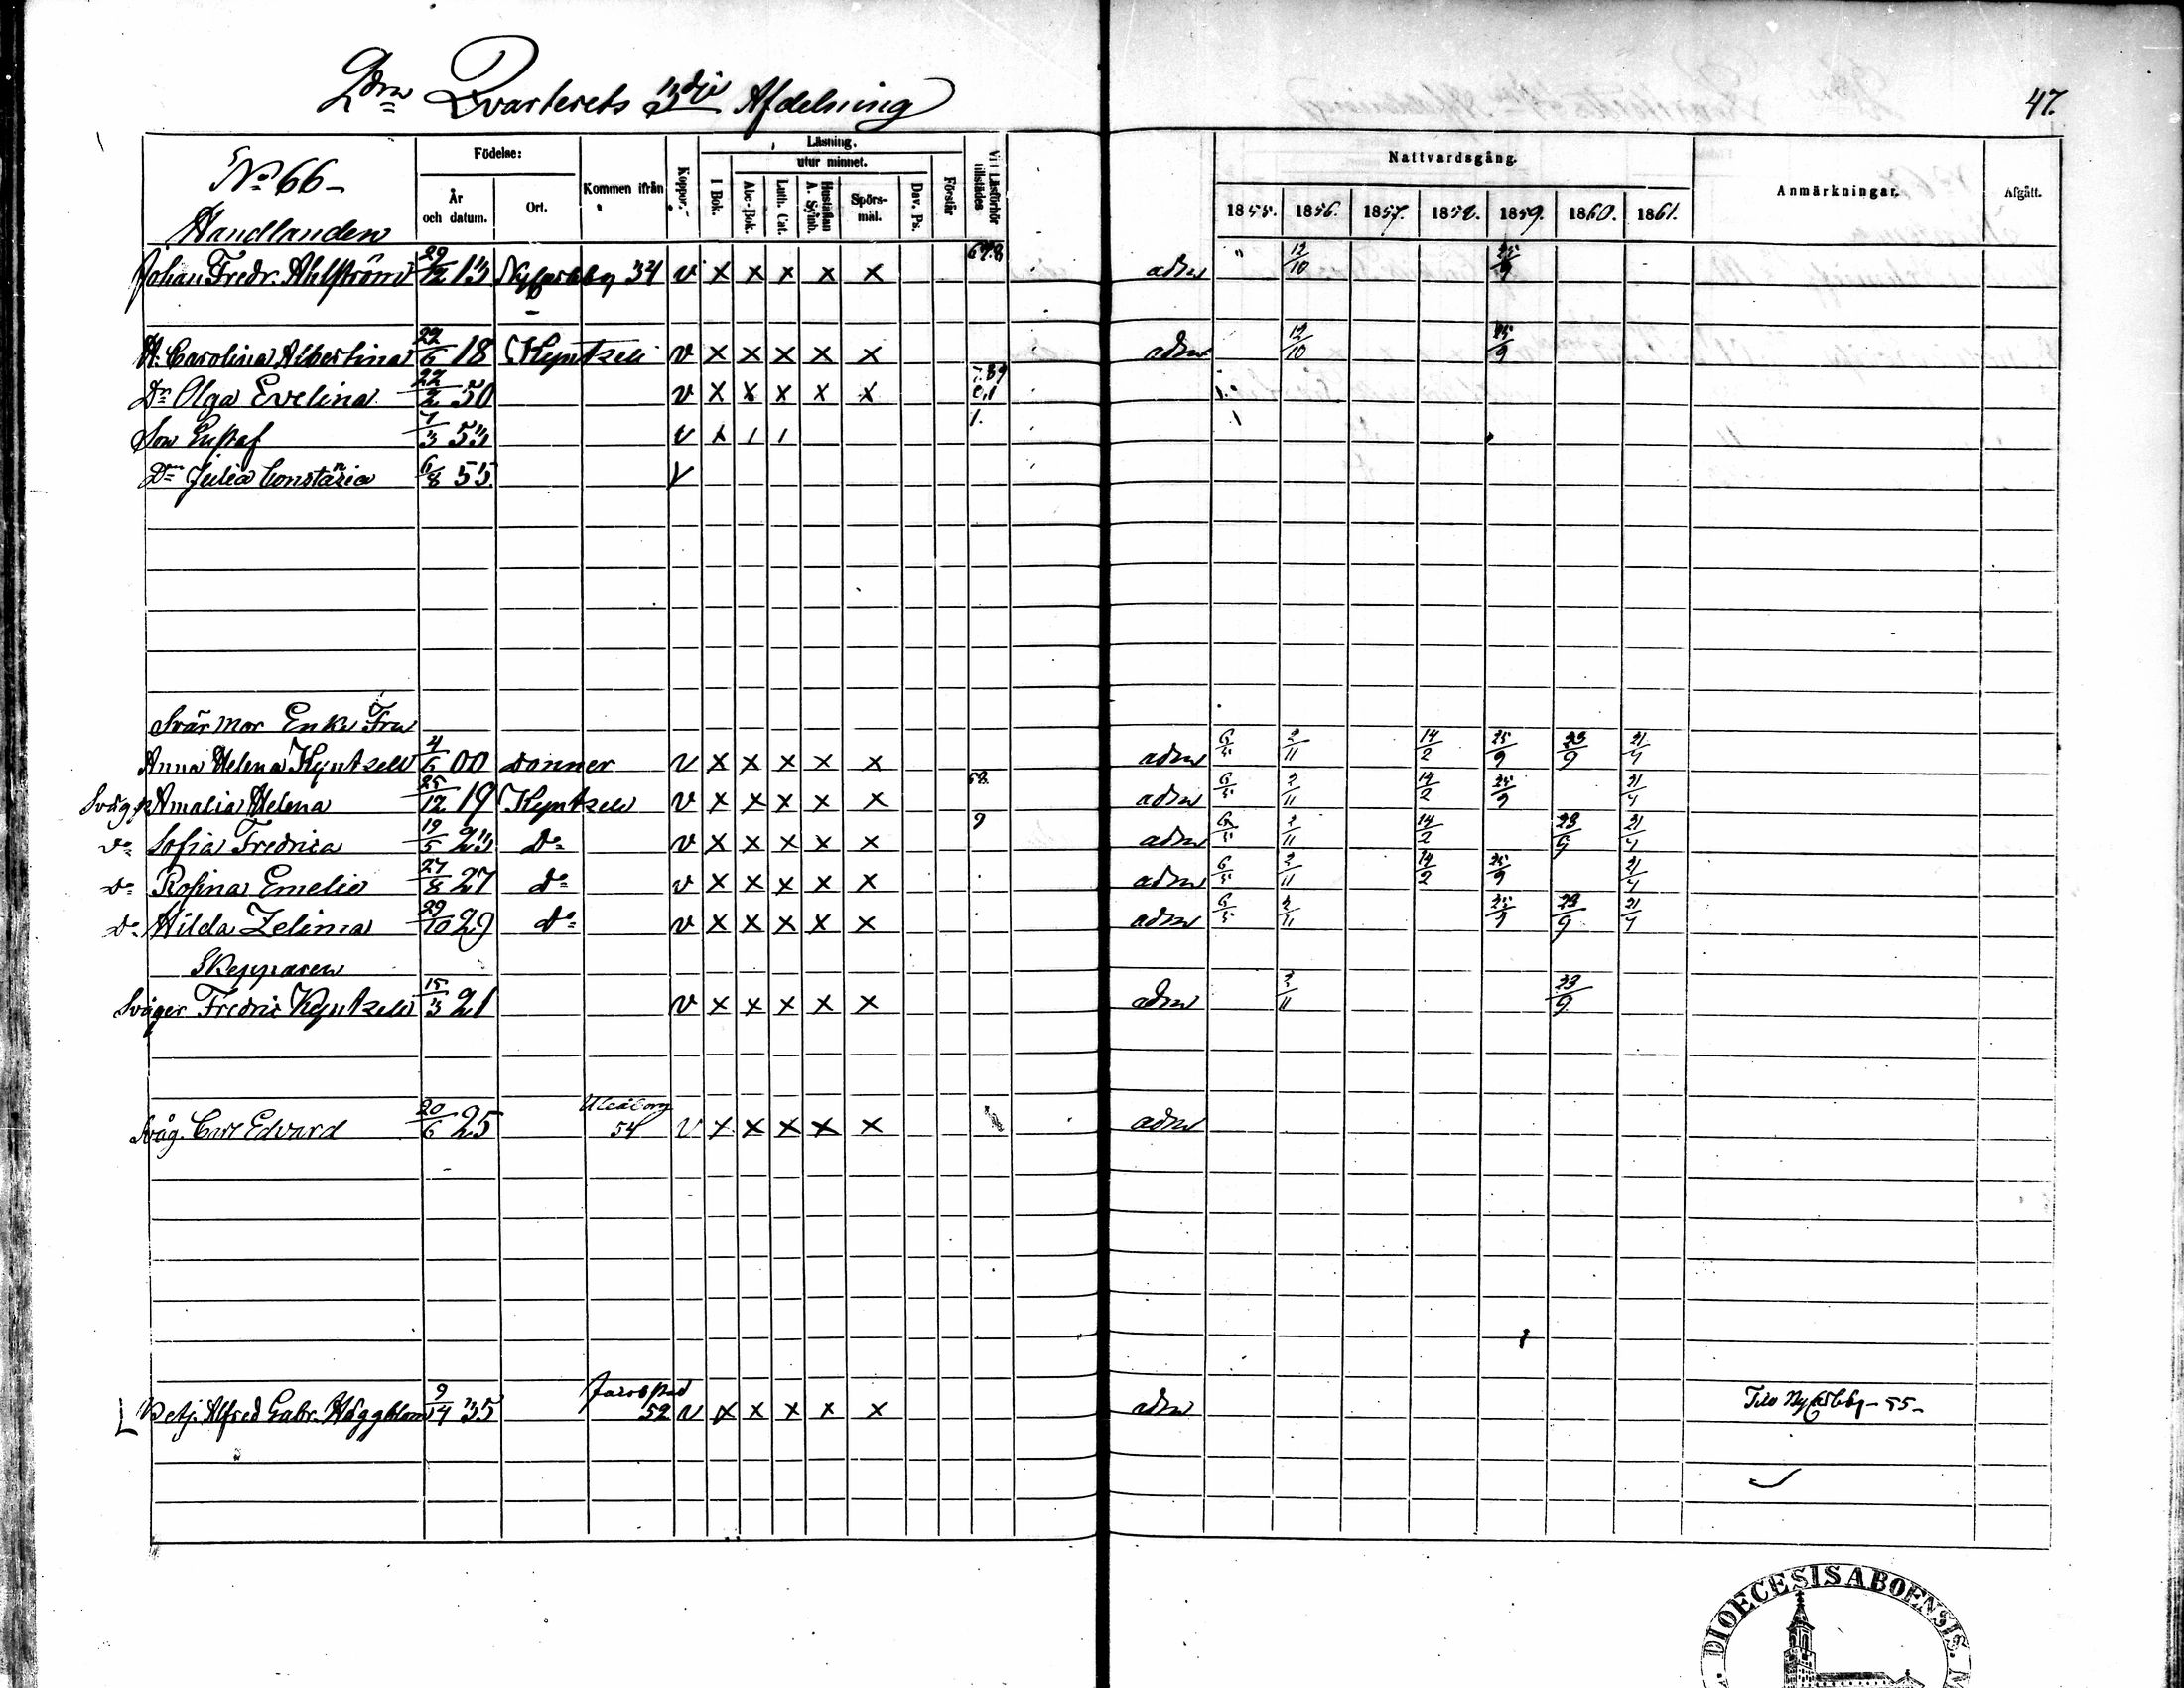 2dra Qvarterets 3dje Afdelning
47.
No 66
Födelse:
År och datum.
Ort.
Kommen ifrån
Koppor.
Läsning.
I Bok.
utur minnet.
Abc-Bok.
Luth. Cat.
Hustaflan A. Symb.
Spörs-mål.
Dav. Ps.
Förstår
Vid Läsförhör tillstädes
Nattvardsgång.
1855. 1856. 1857. 1858. 1859. 1860. 1861.
Anmärkningar.
Afgått.
Handlanden
Johan Fredr. Ahlström 29/12 13 Nycarleby 34 v x x x x x adm " 12/10 25/9
H. Carolina Albertina 22/6 18 Kyntzell v x x x x x adm 12/10 25/9
Dr Olga Evelina 22/2 50 v x x x x x
Son Gustaf 7/3 53 v x / / 1.
Dr Julia Constania 6/8 55 v
Svärmor Enke Fru
Anna Helena Kyntzell 4/6 00 Donner v x x x x x adm 6/5 2/11 14/2 25/9 23/9 21/4
Sväg. Amalia Helena 25/12 19 Kyntzell v x x x x x 58. adm 6/5 2/11 14/2 25/9 21/4
Do Sofia Fredrica 19/5 23 Do v x x x x x 9 adm 6/5 2/11 14/2 23/9 21/4
Do Rosina Emelie 27/8 27 Do v x x x x x adm 6/5 2/11 14/2 25/9 21/4
Do Hilda Zelima 29/10 29 Do v x x x x x adm 6/5 2/11 25/9 23/9 21/4
Skepparen
Svåger Fredric Kyntzell 15/3 21 v x x x x x adm 2/11 23/9
Svåg. Carl Edvard 20/6 25 Uleåborg 54 v x x x x x adm
Betj. Alfred Gabr. Häggblom 9/4 35 Jacobstad 52 v x x x x x adm Till Nycarleby 55
DIOECESIS ABOENSIS.